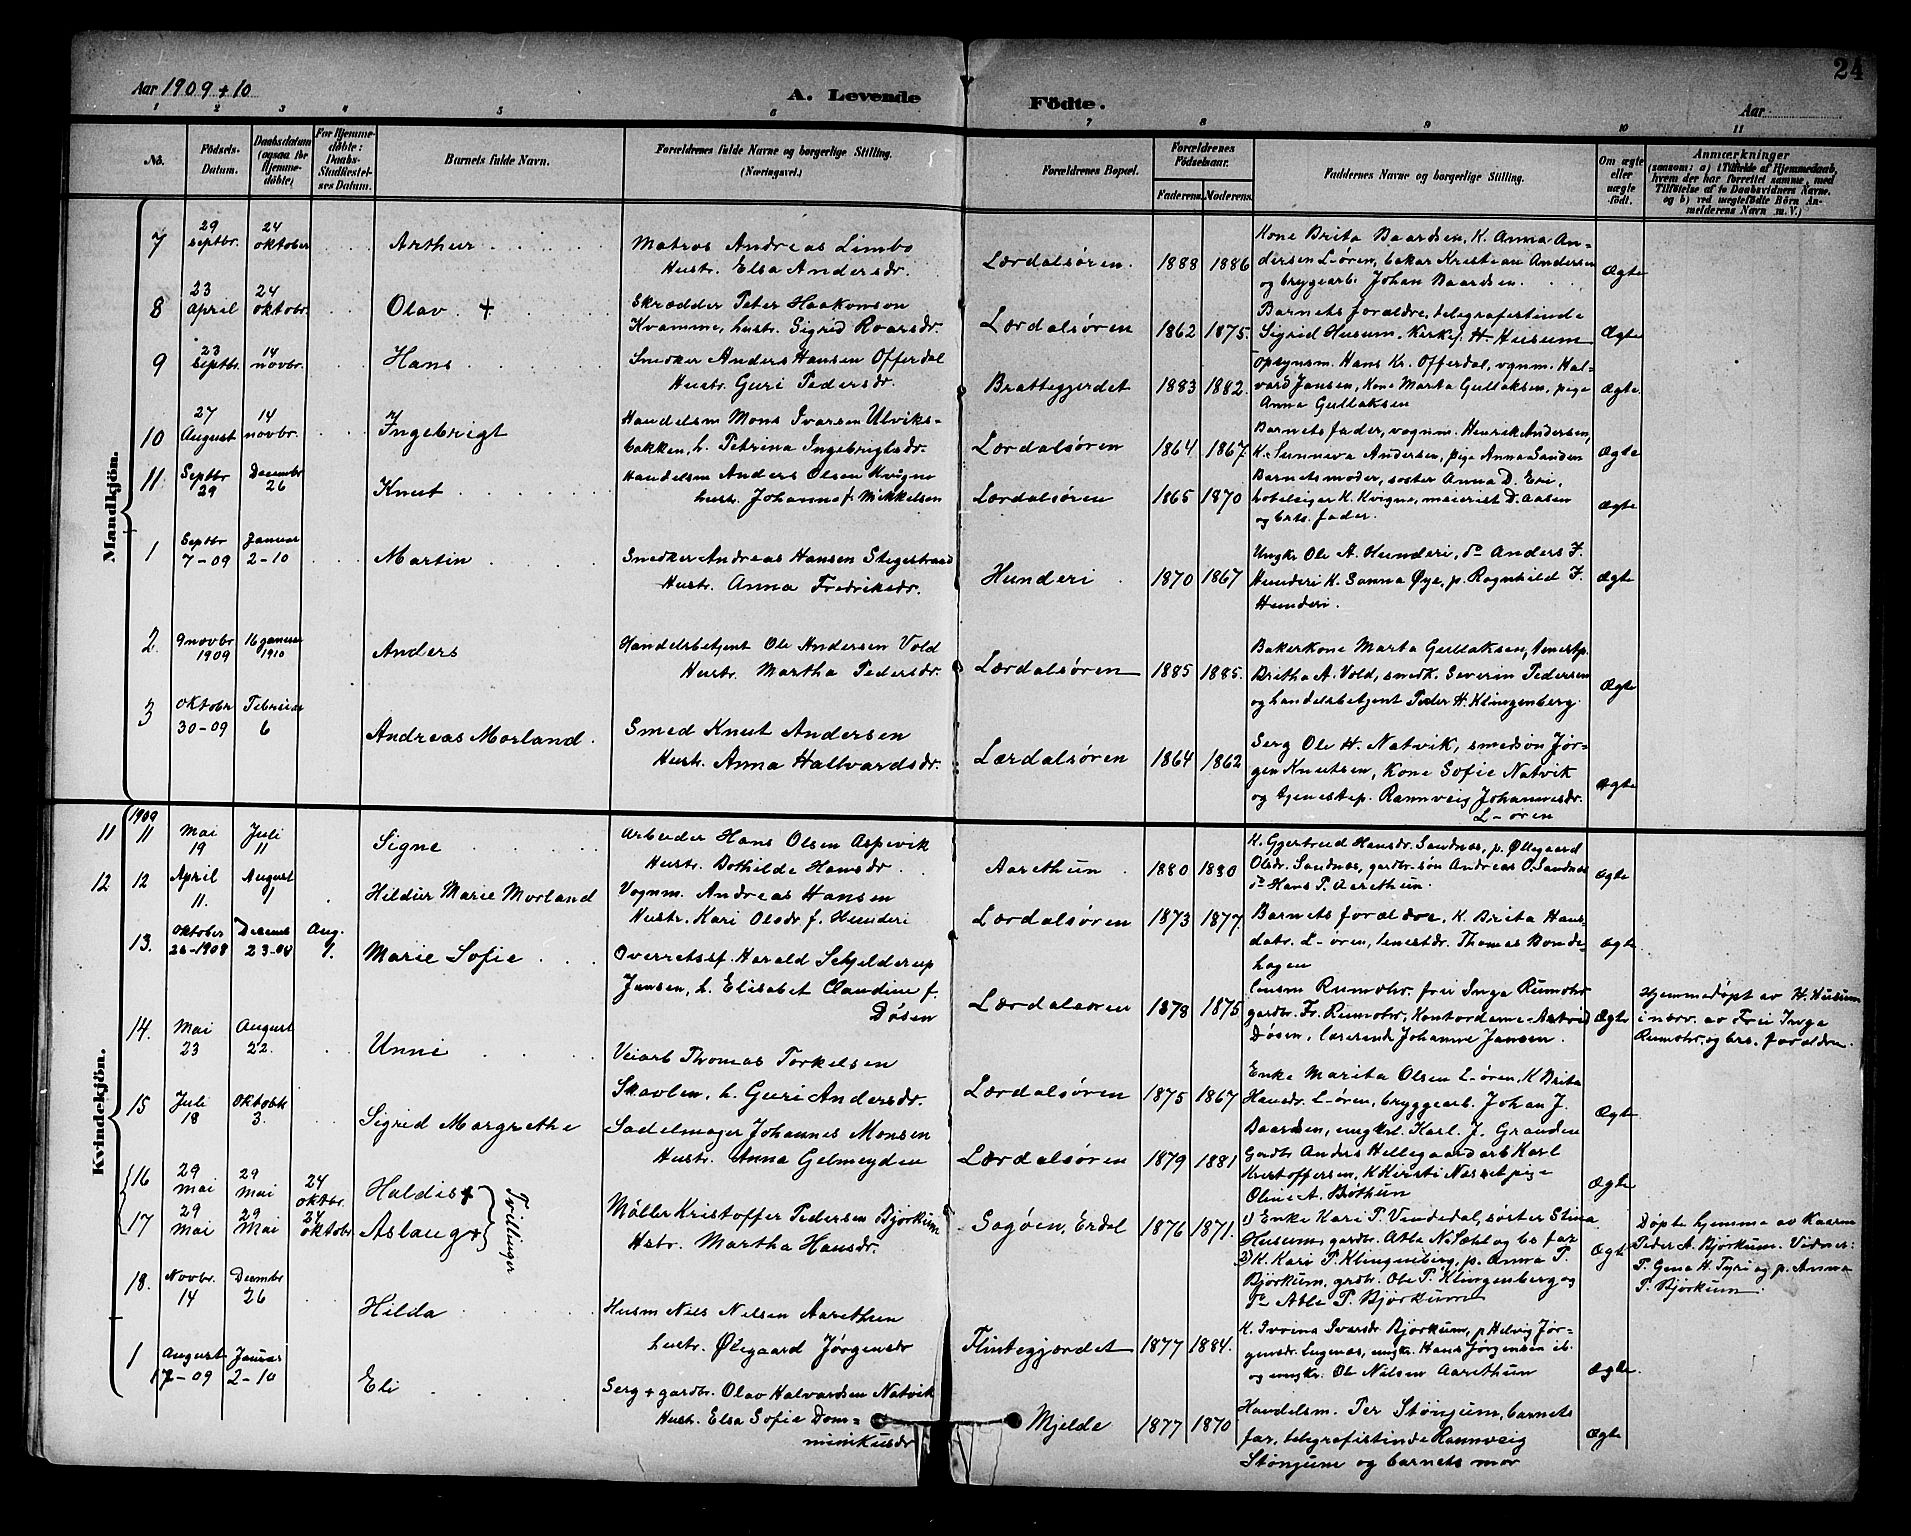 Aar 1909 + 10
A. Levende
Födte.
Aar
24
1 2 3 4 5 6 7 8 9 10 11
No.
Födsels-
Datum.
Daabsdatum
(ogsaa for
Hjemme-
döbte)
For Hjemme-
döbte:
Daabs-
Stadfæstel-
ses Datum.
Barnets fulde Navn.
Forældrenes fulde Navne og borgerlige Stilling.
(Næringsvei.)
Forældrenes Bopæl.
Forældrenes
Födselsaar.
Faderens. Moderens.
Faddernes Navne og borgerlige Stilling.
Om ægte
eller
uægte
födt.
Anmærkninger
(saasom: a) i Tilfælde af Hjemmedaab,
hvem der har forrettet samme, med
Tilföielse af to Daabsvidners Navne.
og b) ved uægtefödte Börn An-
melderens Navn m. V.)
Mandkjön.
7
29
septbr.
24
oktober
Arthur
Matros Andreas Limbo
Hustr. Elsa Andersdr.
Lærdalsøren.
1888 1886
Kone Brita Baardsen, K. Anna An-
dersen L-øren, bakar Kristian Andersen
og bryggearb. Johan Baardsen.
Ægte
8
23
April
24
oktobr.
Olav. +
Skrædder Peter Haakonson
Kvamme, hustr. Sigrid Roarsdr.
Lærdalsøren
1862 1875.
Barnets forældre, telegrafistinde
Sigrid Husum, Kirkes. H. Husum
Ægte
9
23
septbr.
14
novbr.
Hans
Snedker Anders Hansen Offerdal
Hustr. Guri Pedersdr.
Brattegjerdet
1883 1882.
Opsynsm. Hans Kr. Offerdal, vgnm. Hal-
vard Jansen, Kone Marta Gullaksen, pige
Anna Gullaksen
Ægte.
10
27
August
14
novbr.
Ingebrigt
Handelsm Mons Ivarsen Ulviks-
bakken, h. Petrina Ingebrigtsdr.
Lærdalsøren
1864 1867.
Barnets fader, vognm. Henrik Andersen,
K. Sunneva Andersen, pige Anna Sanden
Ægte
11
Septbr
29
Decembr
26
Knut
Handelsm Anders Olsen Kvigne
hustr. Johanne f. Mikkelsen
Lærdalsøren
1865 1870
Barnets moder, søster Anna D. Eri,
hotelejer K. Kvigne, maierist D. Aasen
og brts. fader.
Ægte
1
Septbr
7-09
Januar
2-10
Martin
Snedker Andreas Hansen Stegestrand
Hustr. Anna Fredriksdr.
Hunderi
1870 1867
Ungkr Ole A. Hunderi, do Anders J.
Hunderi K. Sanna Øye, p. Ragnhild J.
Hunderi.
Ægte
2.
9 novbr
1909
16 januar
1910
Anders
Handelsbetjent Ole Andersen Vold
Hustr. Martha Pedersdr.
Lærdalsøren
1885 1885.
Bakerkone Marta Gullaksen, tjenestp.
Britha A. Vold, smedk. Severin Pedersen
og handelsbetjent Peder H. Klingenberg.
Ægte
3
oktober
30-09
Februar
6
Andreas Morland.
Smed Knut Andersen
Hustr. Anna Hallvardsdr.
Lærdalsøren
1864 1862
Serg Ole H. Natvik, smedsøn Jør-
gen Knutsen, Kone Sofie Natvik
og tjenestep. Rannveig Johannesdr.
L-øren
Ægte
Kvindekjön.
1909
11
11
Mai
19
Juli
11
Signe
Arbeider Hans Olsen Aspevik
Hustr. Bothilde Hansdr.
Aarethun
1880 1880
K. Gjertrud Hansdr. Sandnæs, p. Øllegaard
Olsdr. Sandnæs, gardbr.søn Andreas O. Sandnæs
do Hans P. Aarethun.
Ægte
12
12
April
11.
August
1
Hildur Marie Morland
Vognm. Andreas Hansen
Hustr. Kari Olsdr f. Hunderi
Lærdalsøren
1873 1877.
Barnets forældre, K. Brita Hans-
datr. L-øren, tenestdr. Thomas Bonde-
hagen
Ægte
13.
oktober
26-1908
Decembr
23-08
Aug.
1.
Marie Sofie
Overretssf. Harald Schjelderup
Jansen, h. Elisabet Claudine f.
Døsen
Lærdalsøren
1878 1875
Lensm Rumohr. fru Inga Rumohr
gardbr. Fr. Rumohr, Kontordame Astrid
Døsen, lærerinde Johanne Jansen.
Ægte
Hjemmedøpt av H. Husum
i nærv. av Fru Inga
Rumohr. og brs. forældre.
14.
Mai
23
August
22.
Unni
Veiarb Thomas Torkelsen
Skavlen, h. Guri Andersdr.
Lærdalsøren
1875 1867
Enke Marita Olsen L-øren, K Brita
Hansdr. L-øren, bryggearb. Johan J.
Baardsen, ungkrl. Karl. J. Granden
Ægte
15
Juli
18
Oktobr
3.
Sigrid Margrethe
Sadelmager Johannes Monsen
Hustr. Anna Gelmeyden
Lærdalsøren
1879 1881
Gardbr Anders Hellegaard arb Karl
Kristoffersen, K Kirsti Næsset pige
Oline A. Bøthun
Ægte
16
29
Mai
29
Mai
24
oktbr.
Haldis +
17
29
Mai
29
Mai
24
oktobr
Aslaug +
Tvillinger
Møller Kristoffer Pedersen Bjørkum
Hstr. Martha Hansdr.
Sagøen, Erdal
1876 1871.
1) Enke Kari P. Vindedal, søster Stina
Husum, gardbr. Atle N. Sæhl og bs far
2) K. Kari P. Klingenberg, p. Anna P.
Bjørkum, grdbr. Ole P. Klingenberg og
do Atle P. Bjørkum
Ægte
Døpte hjemme av Kaarm
Peder A. Bjørkum. Vidner:
P. Gena H. Tyri og p. Anna
P. Bjørkum.
18.
Novbr.
14
Decembr
26
Hilda
Husm Nils Nilsen Aarethun
hustr. Ølegaard Jørgensdr
Flintegjærdet
1877 1884.
K. Ivrina Ivarsdr Bjørkum, p Helvig Jør-
gensdr. Lugnæs, ungkr. Hans Jørgensen ib.
og ungkr. Ole Nilsen Aarethun
Ægte.
1
August
17-09
Januar
2-10
Eli
Serg + gardbr. Olav Halvardsen Natvik
Hustr. Elsa Sofie Dom-
minikusdr
Mjelde
1877 1870
Handelsm. Per Stønjum, barnets
far, telegrafistinde Rannveig
Stønjum og barnets mor
Ægte